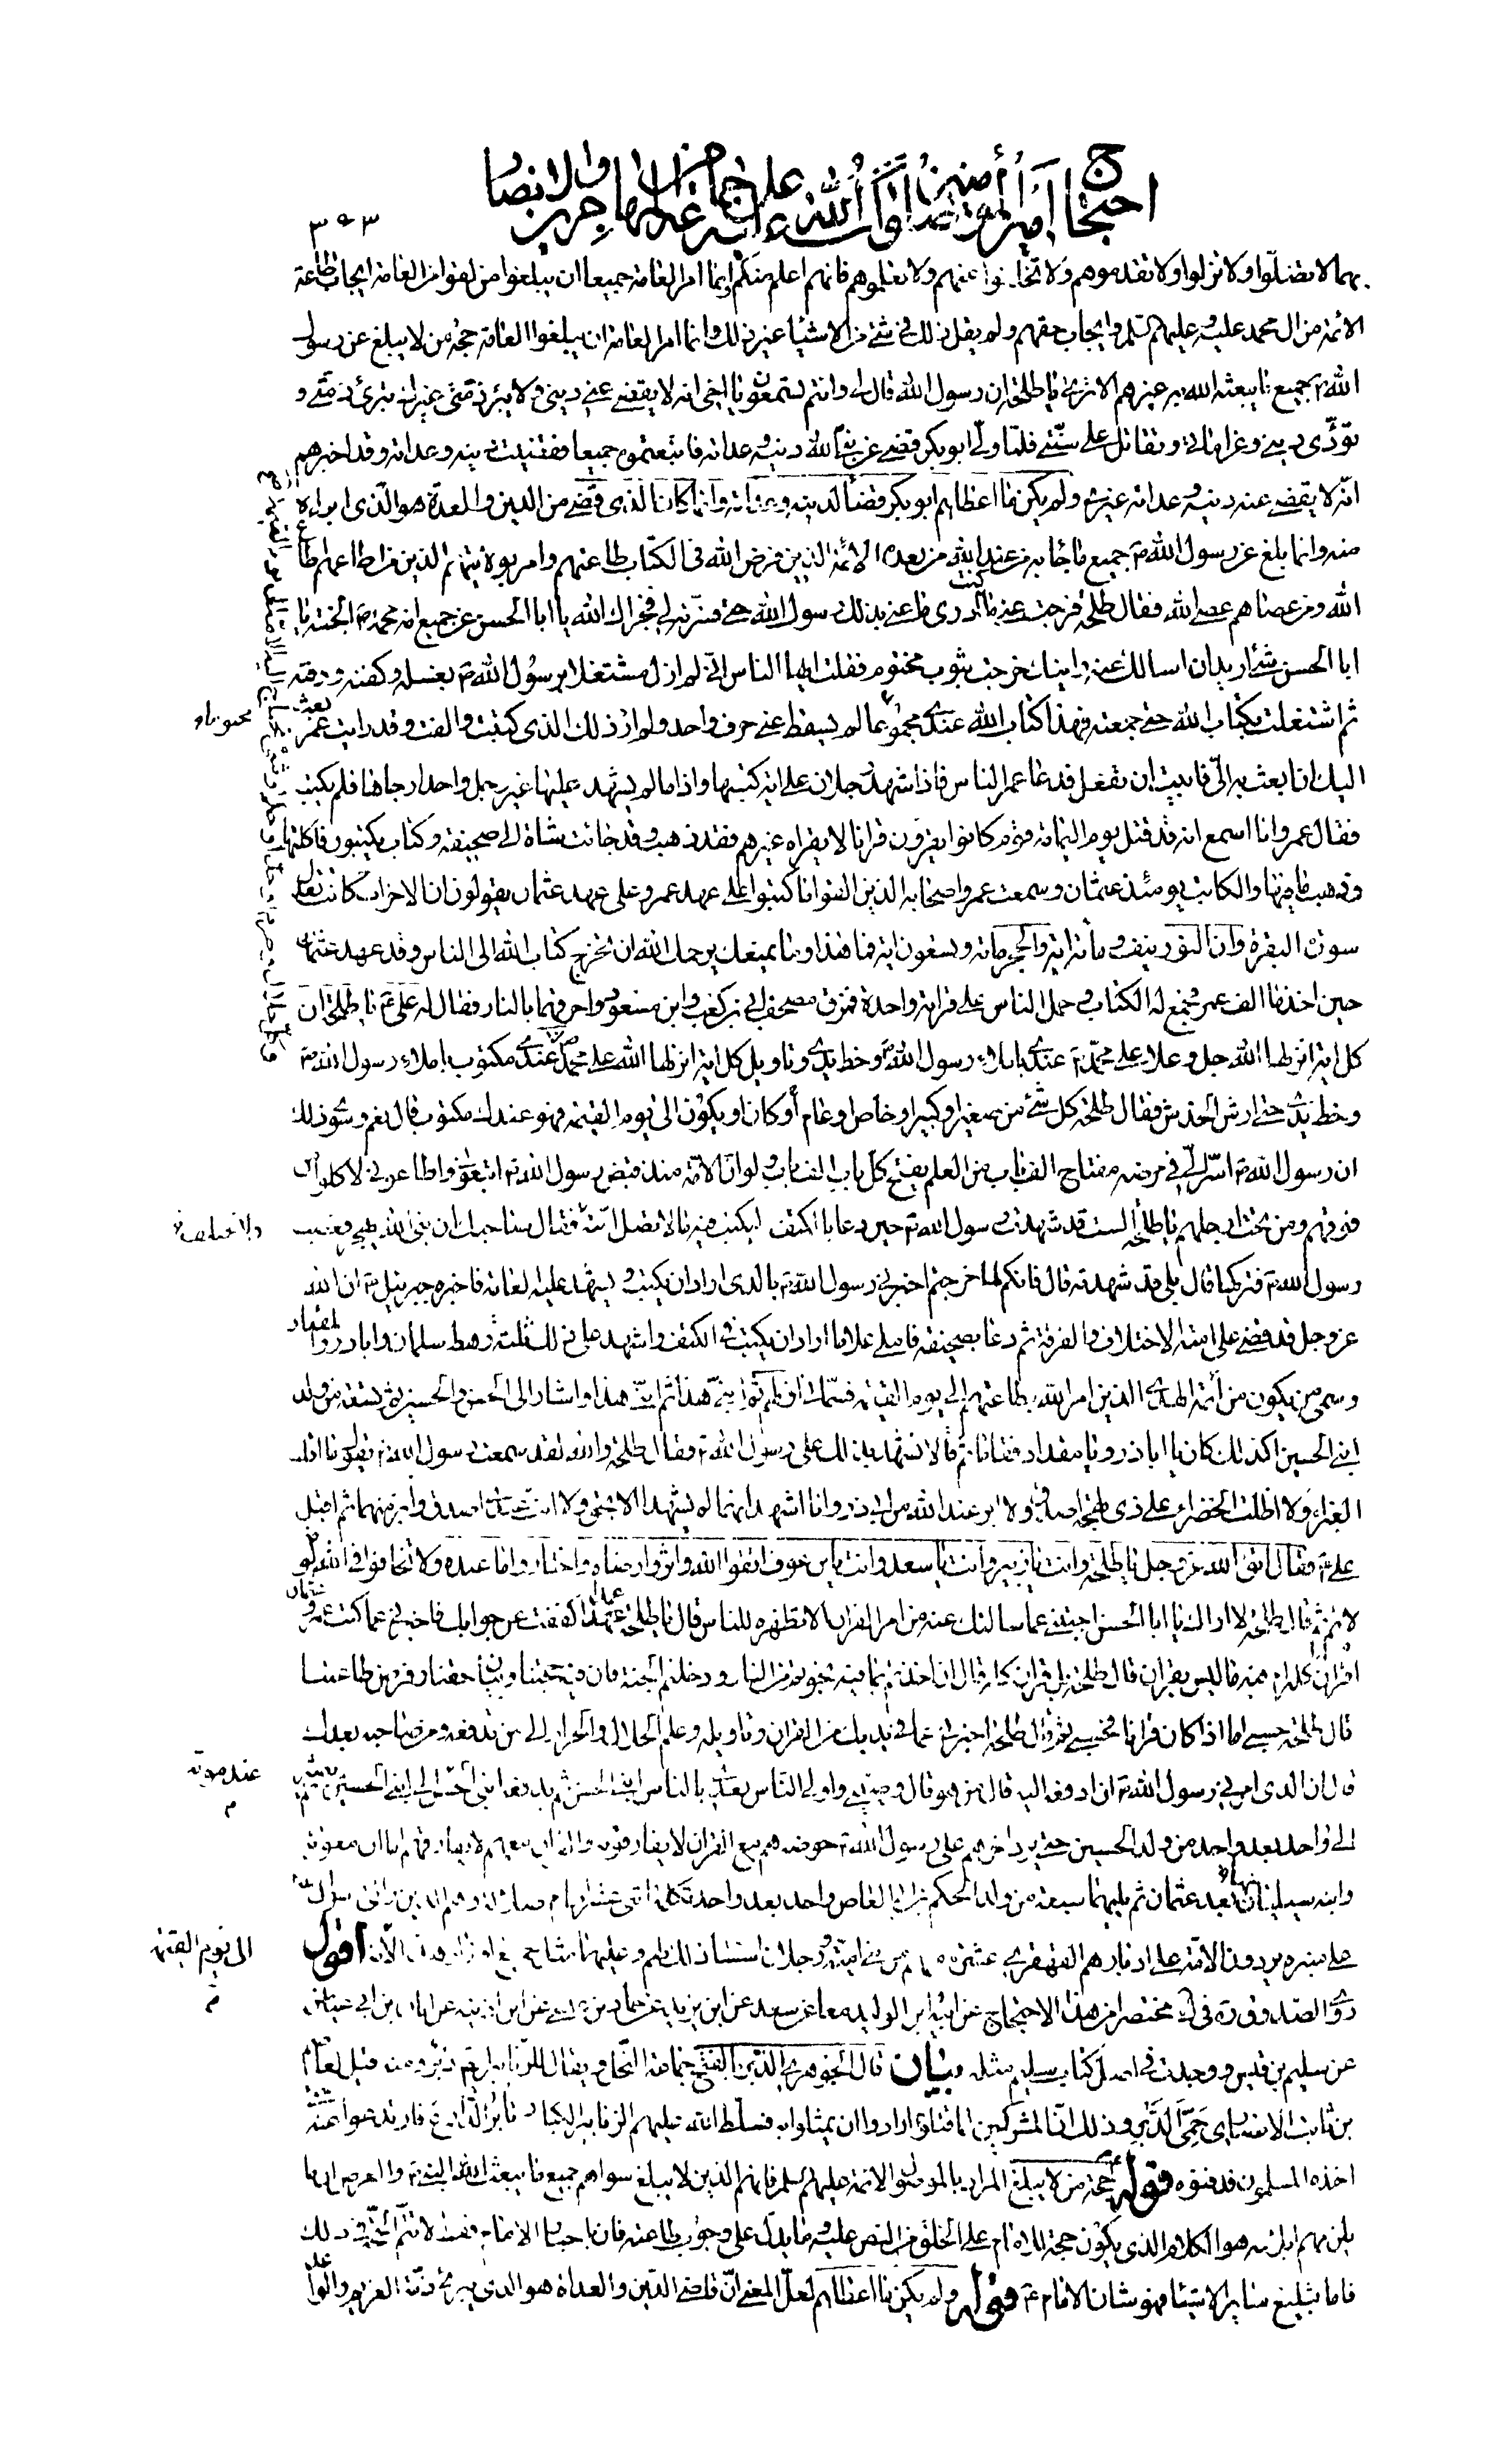 احتجاج أمير المؤمنين صلوات الله عليه على جماعة من المهاجرين والانصار
٣٥٣
بهما لا تضلوا ولا تزلوا ولا تقدموهم ولا تخلفوا عنهم ولا تعلموهم فانهم اعلم منكم وإنما امر العامة جميعا ان يبلغوا من لقوا من العامة ايجاب طاعة
الائمة من ال محمد عليه وعليهم السلم وايجاب حقهم ولم يقل ذلك في شئ من الاشياء غير ذلك وانما امر العامة ان يبلغوا العامة حجة من لا يبلغ عن رسول
الله ص جميع ما يبعثه الله به غيرهم الا ترى يا طلحة ان رسول الله قال لي وانتم تسمعون يا اخي انه لا يقضي عني ديني ولا يبرئ ذمتي غيرك تبرئ ذمتي و
تؤدي ديني وغراماتي وتقاتل على سنتي فلما ولي ابو بكر قضى عن نبي الله دينه وعداته فاتبعتموه جميعا فقضيت دينه وعداته وقد اخبرهم
انه لا يقضي عنه دينه وعداته غيري ولم يكن ما اعطاهم ابو بكر قضاء لدينه وعداته وانما كان الذي قضى من الدين والعدة هو الذي ابراه
منه وانما بلغ عن رسول الله ص جميع ما جاء به من عند الله من بعده الائمة الذين فرض الله في الكتاب طاعتهم وامر بولايتهم الذين من اطاعهم اطاع
الله ومن عصاهم عصى الله فقال طلحة فرجت عني ما كنت ادري ما عنى بذلك رسول الله حتى فسرته لي فجزاك الله يا ابا الحسن عن جميع امة محمد ص الجنة يا
ابا الحسن شئ اريد ان اسالك عنه رايتك خرجت بثوب مختوم فقلت ايها الناس اني لم ازل مشتغلا برسول الله ص بغسله وكفنه ودفنه
ثم اشتغلت بكتاب الله حتى جمعته فهذا كتاب الله عندي مجموعا لم يسقط عني حرف واحد ولم ار ذلك الذي كتبت والفت وقد رايت عمر بعث
اليك ان ابعث به الي فابيت ان تفعل فدعا عمر الناس فاذا شهد رجلان على اية كتبها واذا ما لم يشهد عليها غير رجل واحد ارجاها فلم يكتب
فقال عمر وانا اسمع انه قد قتل يوم اليمامة قوم كانوا يقرؤن قرانا لا يقراه غيرهم فقد ذهب وقد جاءت شاة الى صحيفة وكتاب يكتبون فاكلتها
وذهب ما فيها والكاتب يومئذ عثمان وسمعت عمر واصحابه الذين الفوا ما كتبوا على عهد عمر وعلى عهد عثمان يقولون ان الاحزاب كانت تعدل
سورة البقرة وان النور نيف ومائة اية والحجر مائة وتسعون اية فما هذا وما يمنعك يرحمك الله ان تخرج كتاب الله الى الناس وقد عهد عثمان
حين اخذ ما الف عمر فجمع له الكتاب وحمل الناس على قراءة واحدة فمزق مصحف ابي بن كعب وابن مسعود واحرقهما بالنار فقال له علي ع يا طلحة ان
كل اية انزلها الله جل وعلا على محمد ص عندي باملاء رسول الله ص وخط يدي وتاويل كل اية انزلها الله على محمد ص عندي مكتوب باملاء رسول الله ص
وخط يدي حتى ارش الخدش فقال طلحة كل شئ من صغير او كبير او خاص او عام او كان او يكون الى يوم القيمة فهو عندك مكتوب قال نعم وسوى ذلك
ان رسول الله ص اسر الي في مرضه مفتاح الف باب من العلم يفتح كل باب الف باب ولو ان الامة منذ قبض رسول الله ص اتبعوني واطاعوني لاكلوا من
فوقهم ومن تحت ارجلهم يا طلحة الست قد شهدت رسول الله ص حين دعا بالكتف ليكتب فيه ما لا تضل امته فقال صاحبك ان نبي الله يهجر فغضب
رسول الله ص فتركها قال بلى قد شهدته قال فانكم لما خرجتم اخبرني رسول الله ص بالذي اراد ان يكتب ويشهد عليه العامة فاخبره جبرئيل ع ان الله
عز وجل قد قضى على امته الاختلاف والفرقة ثم دعا بصحيفة فاملى علي ما اراد ان يكتب في الكتف واشهد على ذلك ثلثة رهط سلمان وابا ذر والمقداد
وسمى من يكون من أئمة الهدى الذين امر الله بطاعتهم الى يوم القيمة فسماني اولهم ثم ابني هذا ثم ابني هذا واشار الى الحسن والحسين ثم تسعة من ولد
ابني الحسين اكذلك كان يا ابا ذر ويا مقداد فقاما ثم قالا نشهد بذلك على رسول الله ص وفقال طلحة والله لقد سمعت رسول الله ص يقول ما اقلت
الغبراء ولا اظلت الخضراء على ذي لهجة اصدق ولا ابر عند الله من ابي ذر وانا اشهد انهما لم يشهدا الا بحق ولانت عندي اصدق وابر منهما ثم اقبل
علي ع فقال اتق الله عز وجل يا طلحة وانت يا زبير وانت يا سعد وانت يا بن عوف اتقوا الله واثروا رضاه واختاروا ما عنده ولا تخافوا في الله لومة
لائم ثم قال طلحة لا اراك يا ابا الحسن اجبتني عما سالتك عنه من امر القران الا تظهره للناس قال يا طلحة عمدا كففت عن جوابك فاخبرني عما كتب عمر وعثمان
اقران كله ام فيه ما ليس بقران قال طلحة بل قران كله قال ان اخذتم بما فيه نجوتم من النار ودخلتم الجنة فان فيه حجتنا وبيان حقنا وفرض طاعتنا
قال طلحة حسبي اما اذا كان قرانا فحسبي ثم قال طلحة اخبرني عما في يديك من القران وتاويله وعلم الحلال والحرام الى من تدفعه ومن صاحبه بعدك
قال ان الذي امرني رسول الله ص ان ادفعه اليه قال من هو قال وصيي واولى الناس بعدي بالناس ابني الحسن ثم يدفعه ابني الحسن الى ابني الحسين ثم يصير
الى واحد بعد واحد من ولد الحسين حتى يرد اخرهم على رسول الله ص حوضه هم مع القران لا يفارقونه والقران معهم لا يفارقهم اما ان معوية
وابنه سيليانها بعد عثمان ثم يليها سبعة من ولد الحكم بن ابي العاص واحد بعد واحد تكملة اثنى عشر امام ضلالة وهم الذين راى رسول الله
على منبره يردون الامة على ادبارهم القهقرى عشرة منهم من بني امية ورجلان اسسا ذلك لهم وعليهما مثل جميع اوزار هذه الامة اقول
روى الصدوق ره في ك مختصرا من هذا الاحتجاج عن ابيه وابن الوليد معا عن سعد عن ابن يزيد عن حماد بن عيسى عن ابن اذينه عن ابان بن ابي عياش
عن سليم بن قيس ووجدت في اصل كتاب سليم مثله بيان قال الجوهري الدبر بالفتح جماعة النحل ويقال للزنابير ايضا دبر ومنه قيل لعاصم
بن ثابت الانصاري حمي الدبر وذلك ان المشركين لما قتلوه ارادوا ان يمثلوا به فسلط الله عليهم الزنابير الكبار تابر الدارع فارتدعوا عنه حتى
اخذه المسلمون فدفنوه قوله ع حجة من لا يبلغ المراد بالموصول الائمة عليهم السلم فانهم الذين لا يبلغ سواهم جميع ما يبعث الله النبي ص
يلزمهم ابلاغه هو الكلام الذي يكون حجة للامام على الخلق من النص عليه وما يدل على وجوب طاعته فان
فاما تبليغ سائر الاشياء فهو شان الامام ع قوله ولم يكن ما اعطاهم لعل المعنى ان قاضي الدين والعداة هو الذي يبرئ ذمة الغريم والواعد
عند موته
الى يوم القيمة